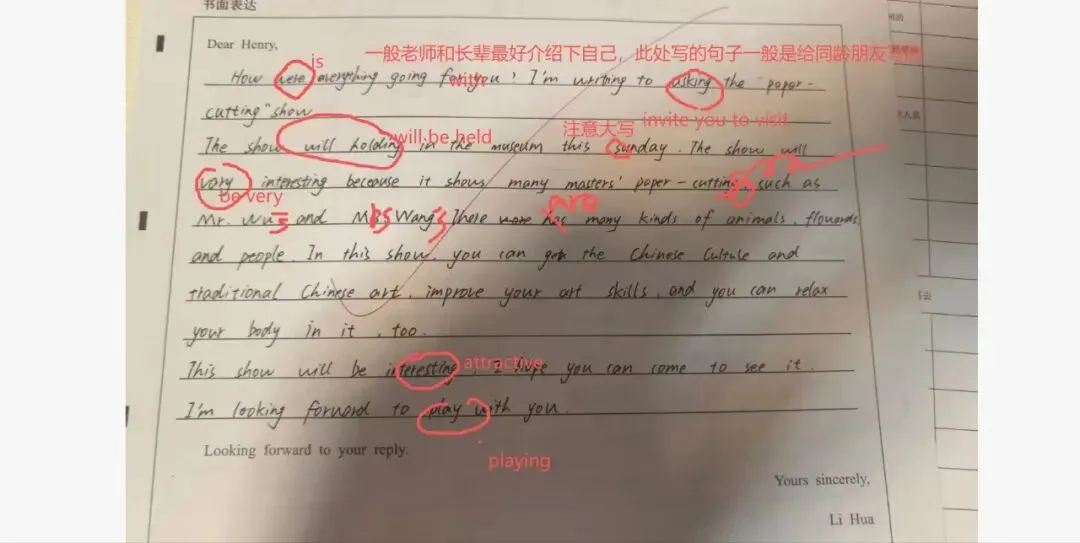 书面表达
Dear Henry,
is 一般老师和长辈最好介绍下自己，此处写的句子一般是给同龄朋友
How were everything going for you? I'm writing to asking the "paper-
with
cutting" show
invite you to visit
will be held 注意大写
The show will holding in the museum this sunday. The show will
vary interesting because it shows many masters' paper-cutting, such as
be very
are
Mr. Wu's and Wang's There were has many kinds of animals, flowards
and people. In this show, you can get the Chinese Cultule and
traditional Chinese art, improve your art skills, and you can relax
your body in it, too.
This show will be interesting, I hope you can come to see it.
attractive
I'm looking forward to play with you.
playing
Looking forward to your reply.
Yours sincerely,
Li Hua